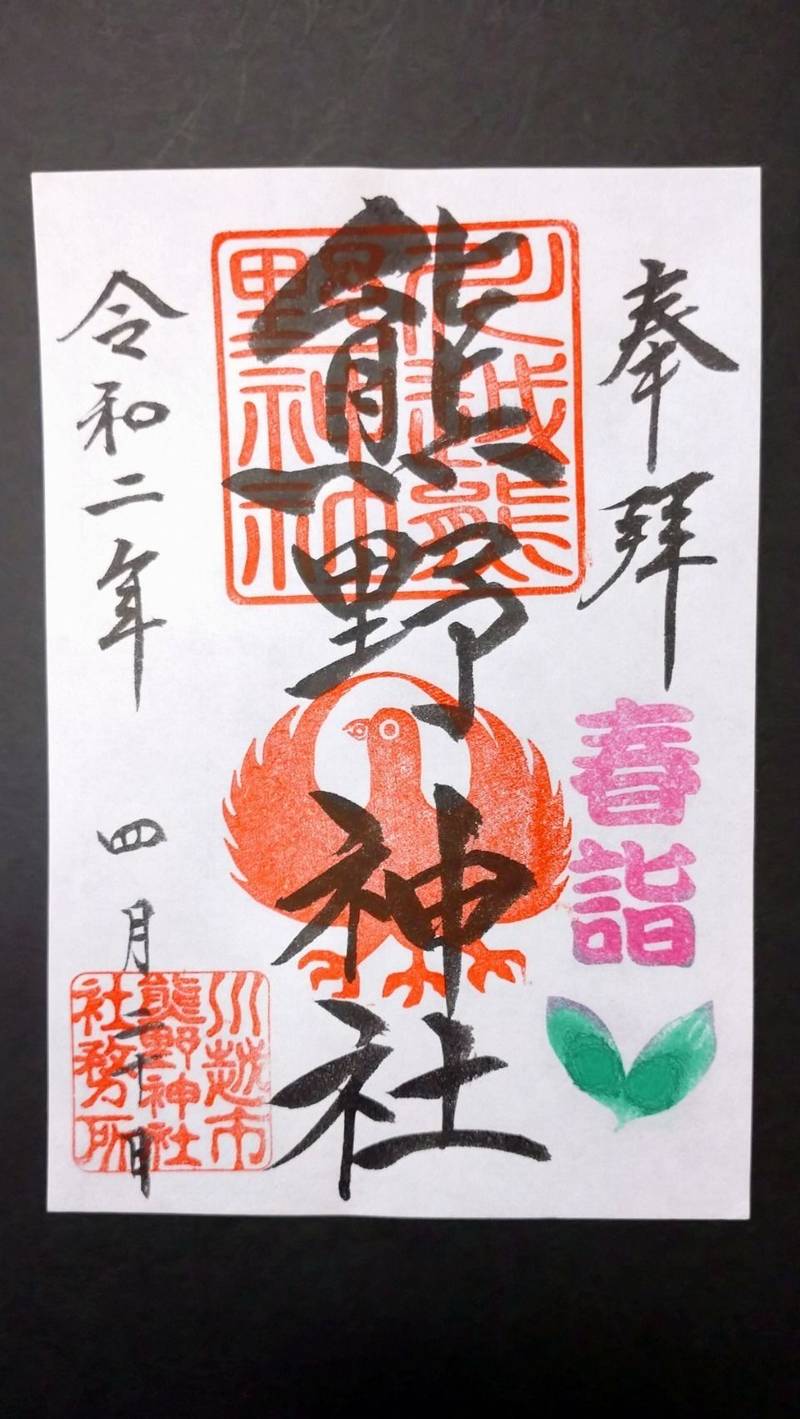 奉拝
春詣
川越熊野神社
熊野神社
令和二年四月二十日
川越市
熊野神社
社務所